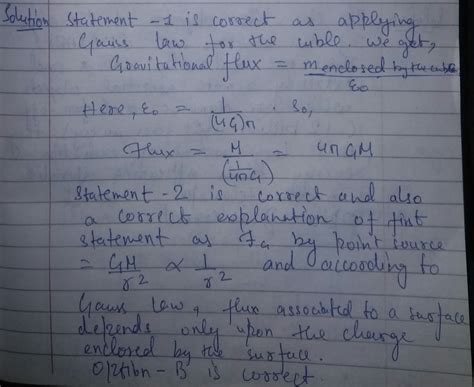 Solution Statement -1 is correct as applying
Gauss law for the cuble. We get,
Gravitational flux = menclosed by the cube
ε0
Here, ε0 = 1/(4G)π. So,
Flux = M/(1/4πG) = 4πGM
Statement -2 is correct and also
a correct explanation of first
statement as FG by point source
= GM/r2 ∝ 1/r2 and according to
Gauss law, flux associated to a surface
depends only upon the charge
enclosed by the surface.
Option - B is correct.